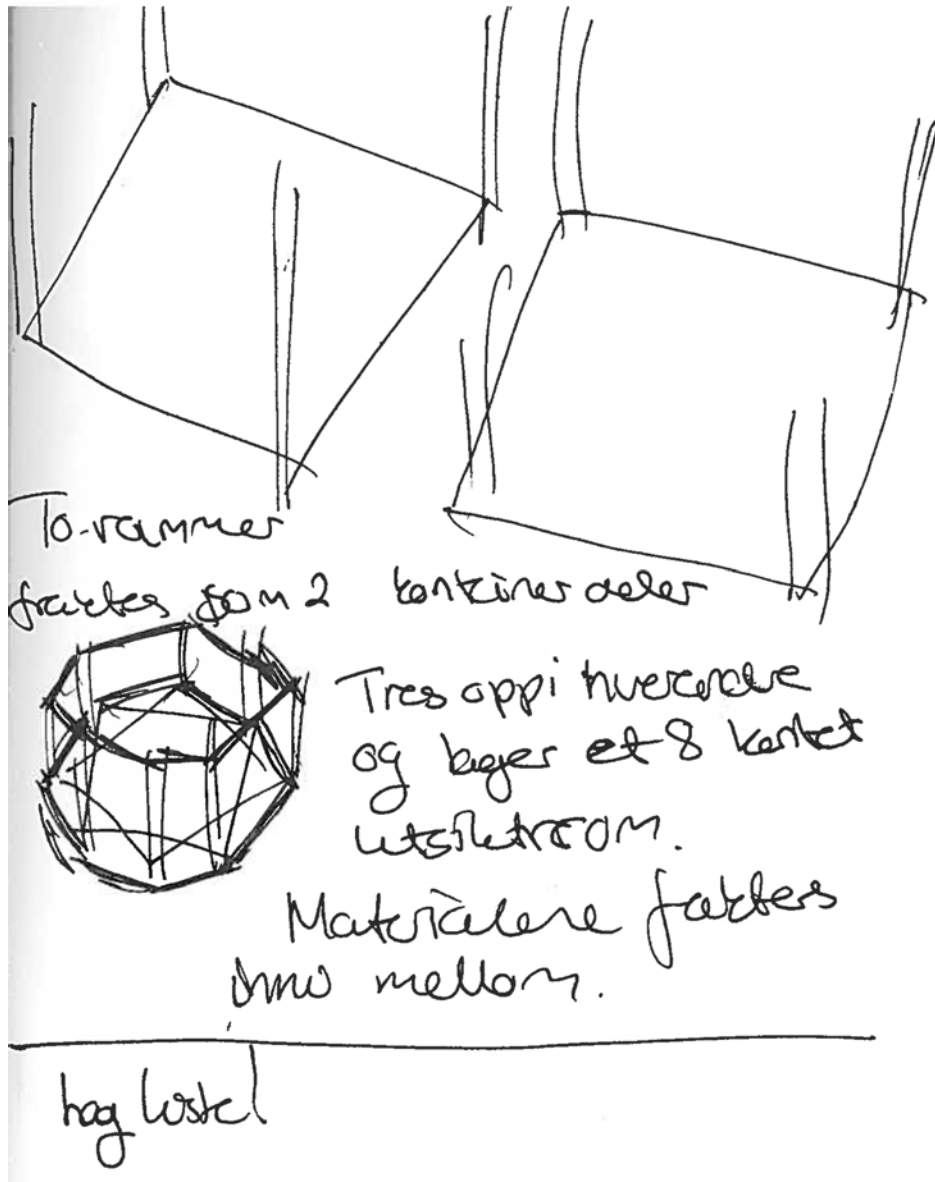 To-rammer
fraktes som 2 kontiner deler
Tres oppi hverandre
og lager et 8 kantet
utsiktsrom.
Materialene fraktes
inni mellom.
hag